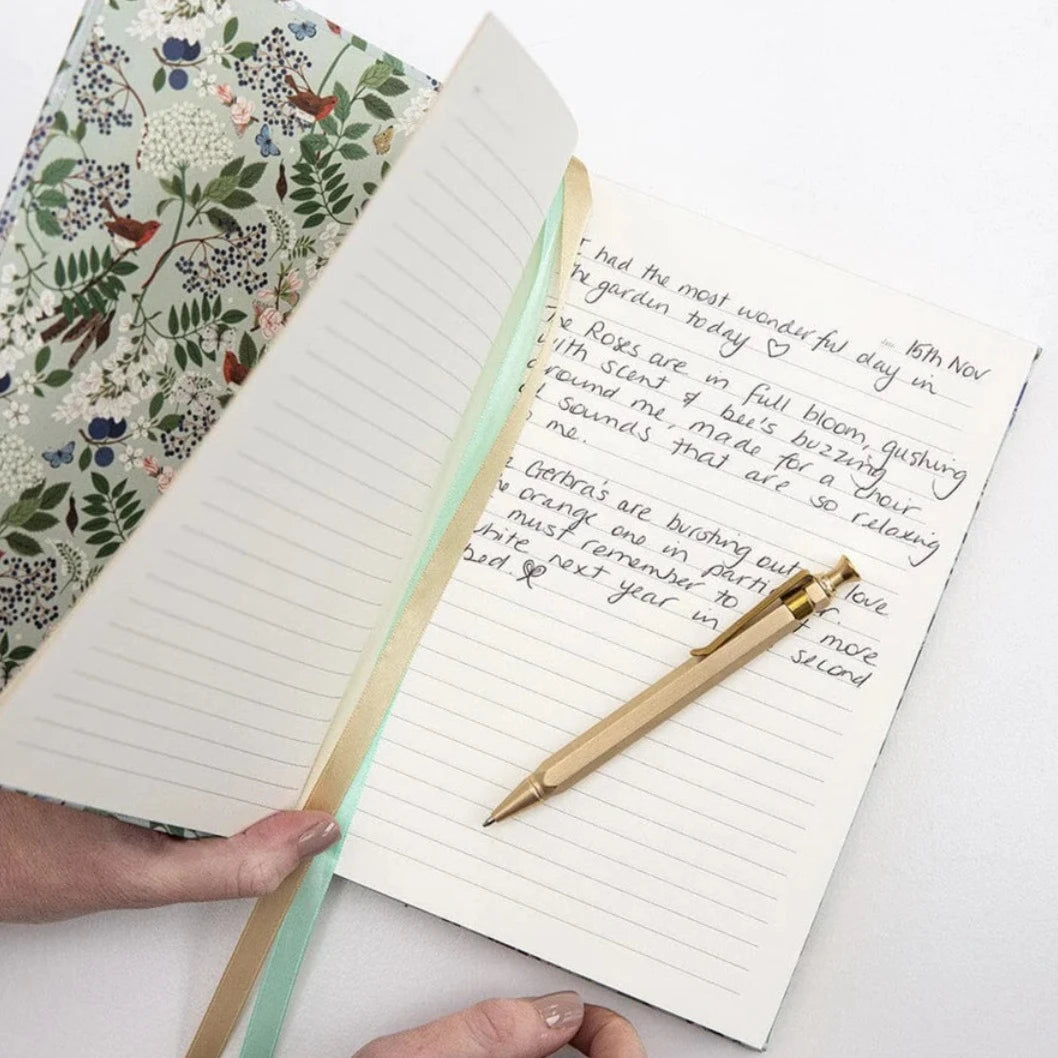 15th Nov
had the most wonderful day in
he garden today ♡
The Roses are in full bloom, gushing
with scent & bee's buzzing
around me, made for a choir
sounds that are so relaxing
me.
Gerbra's are bursting out love
orange one in
must remember to more
white next year in second
bed.